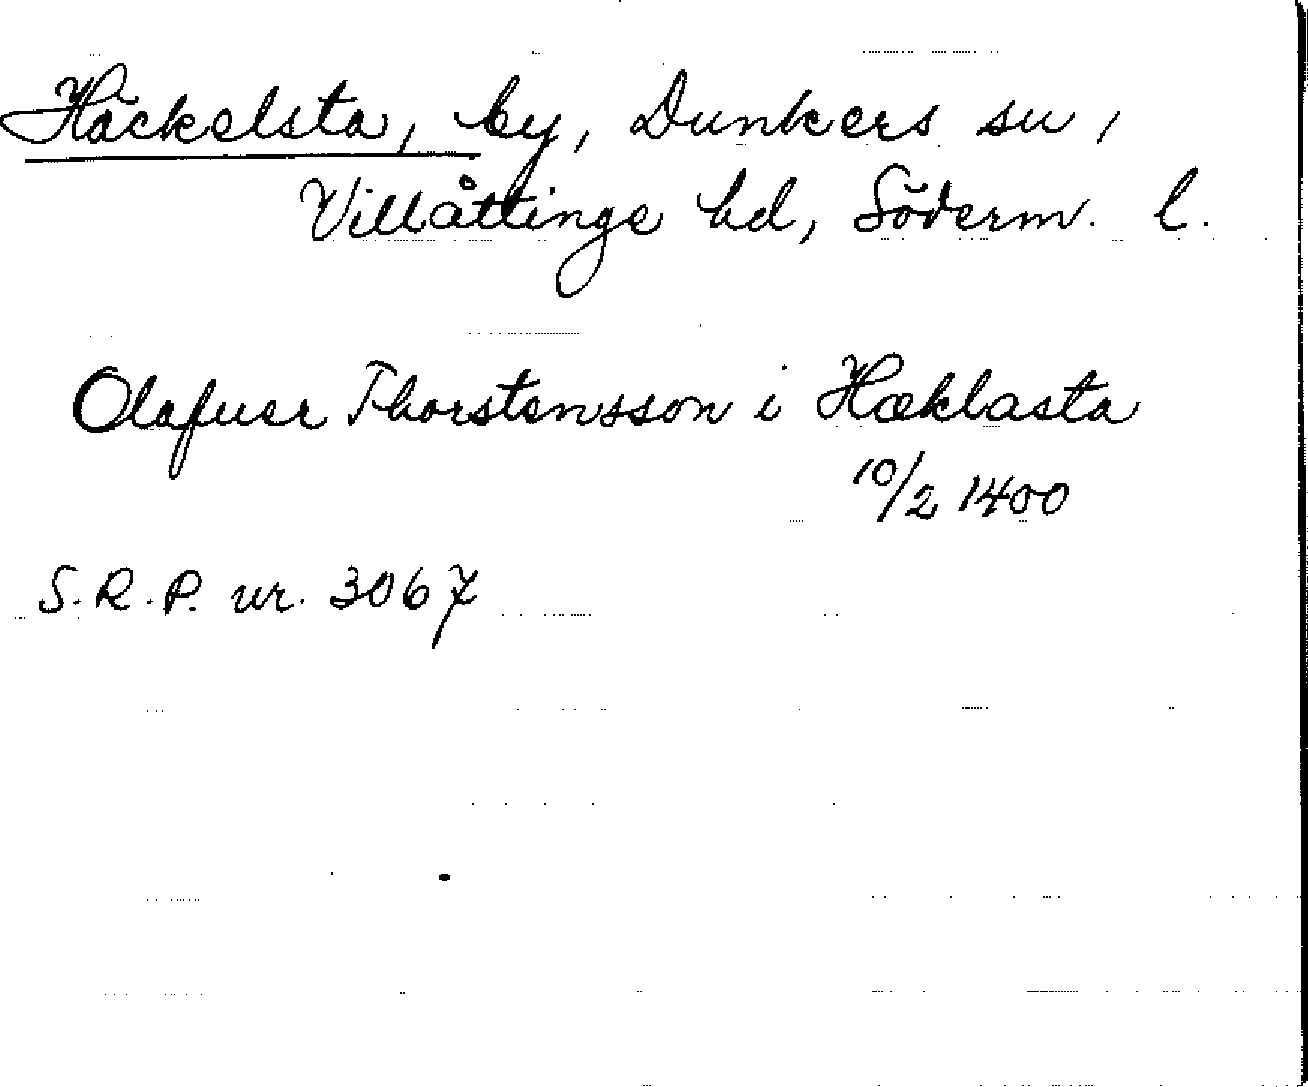 Häckelsta, by, Dunkers sn,
Villåttinge hd, Söderm. l.
Olafuer Thorstensson i Hæklasta
10/2 1400
S.R.P. nr. 3067